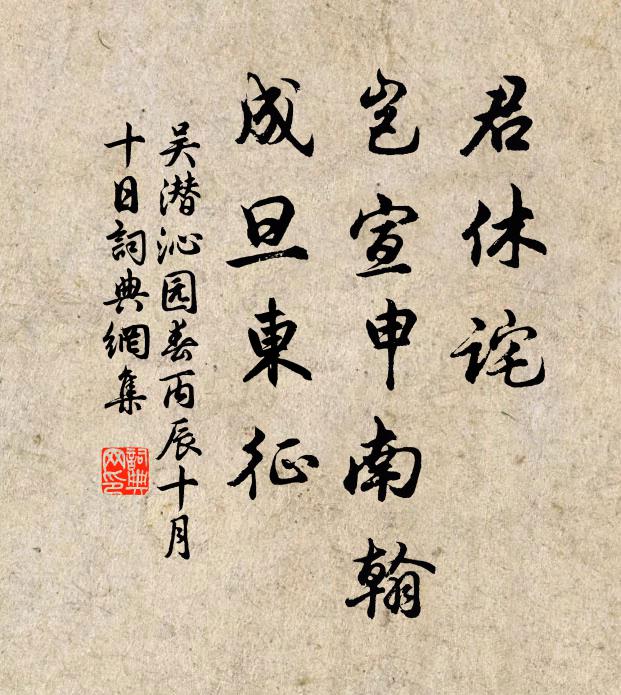 君休詫
岂宣申南翰
成旦東征
吴潜沁园春丙辰十月
十日詞典網集
詞典
网印